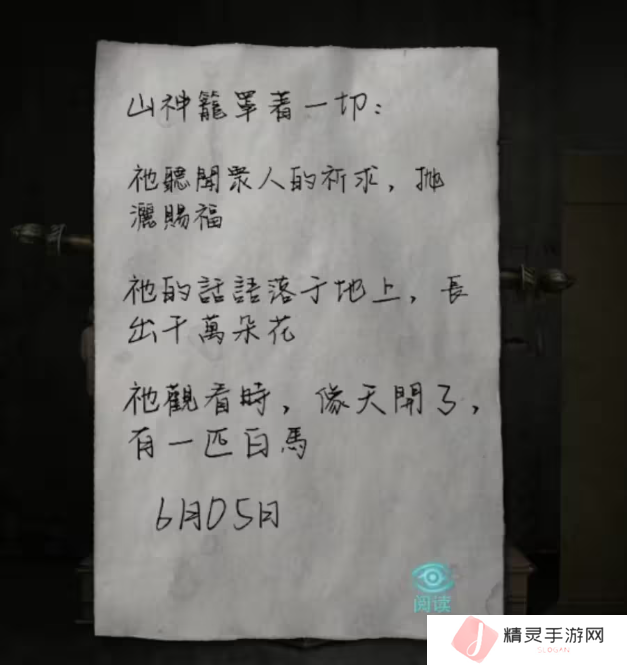 山神籠罩着一切：
祂聽聞眾人的祈求，抛
灑賜福
祂的話語落于地上，長
出千萬朵花
祂觀看時，像天開了，
有一匹白馬
6月05日
阅读
精灵手游网
SLOGAN